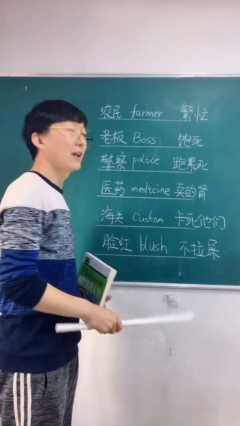 农民 farmer 繁忙
老板 Boss 饱死
警察 police 跑累死
医药 medicine 卖的肾
海关 Custom 卡死他们
脸红 blush 不拉屎